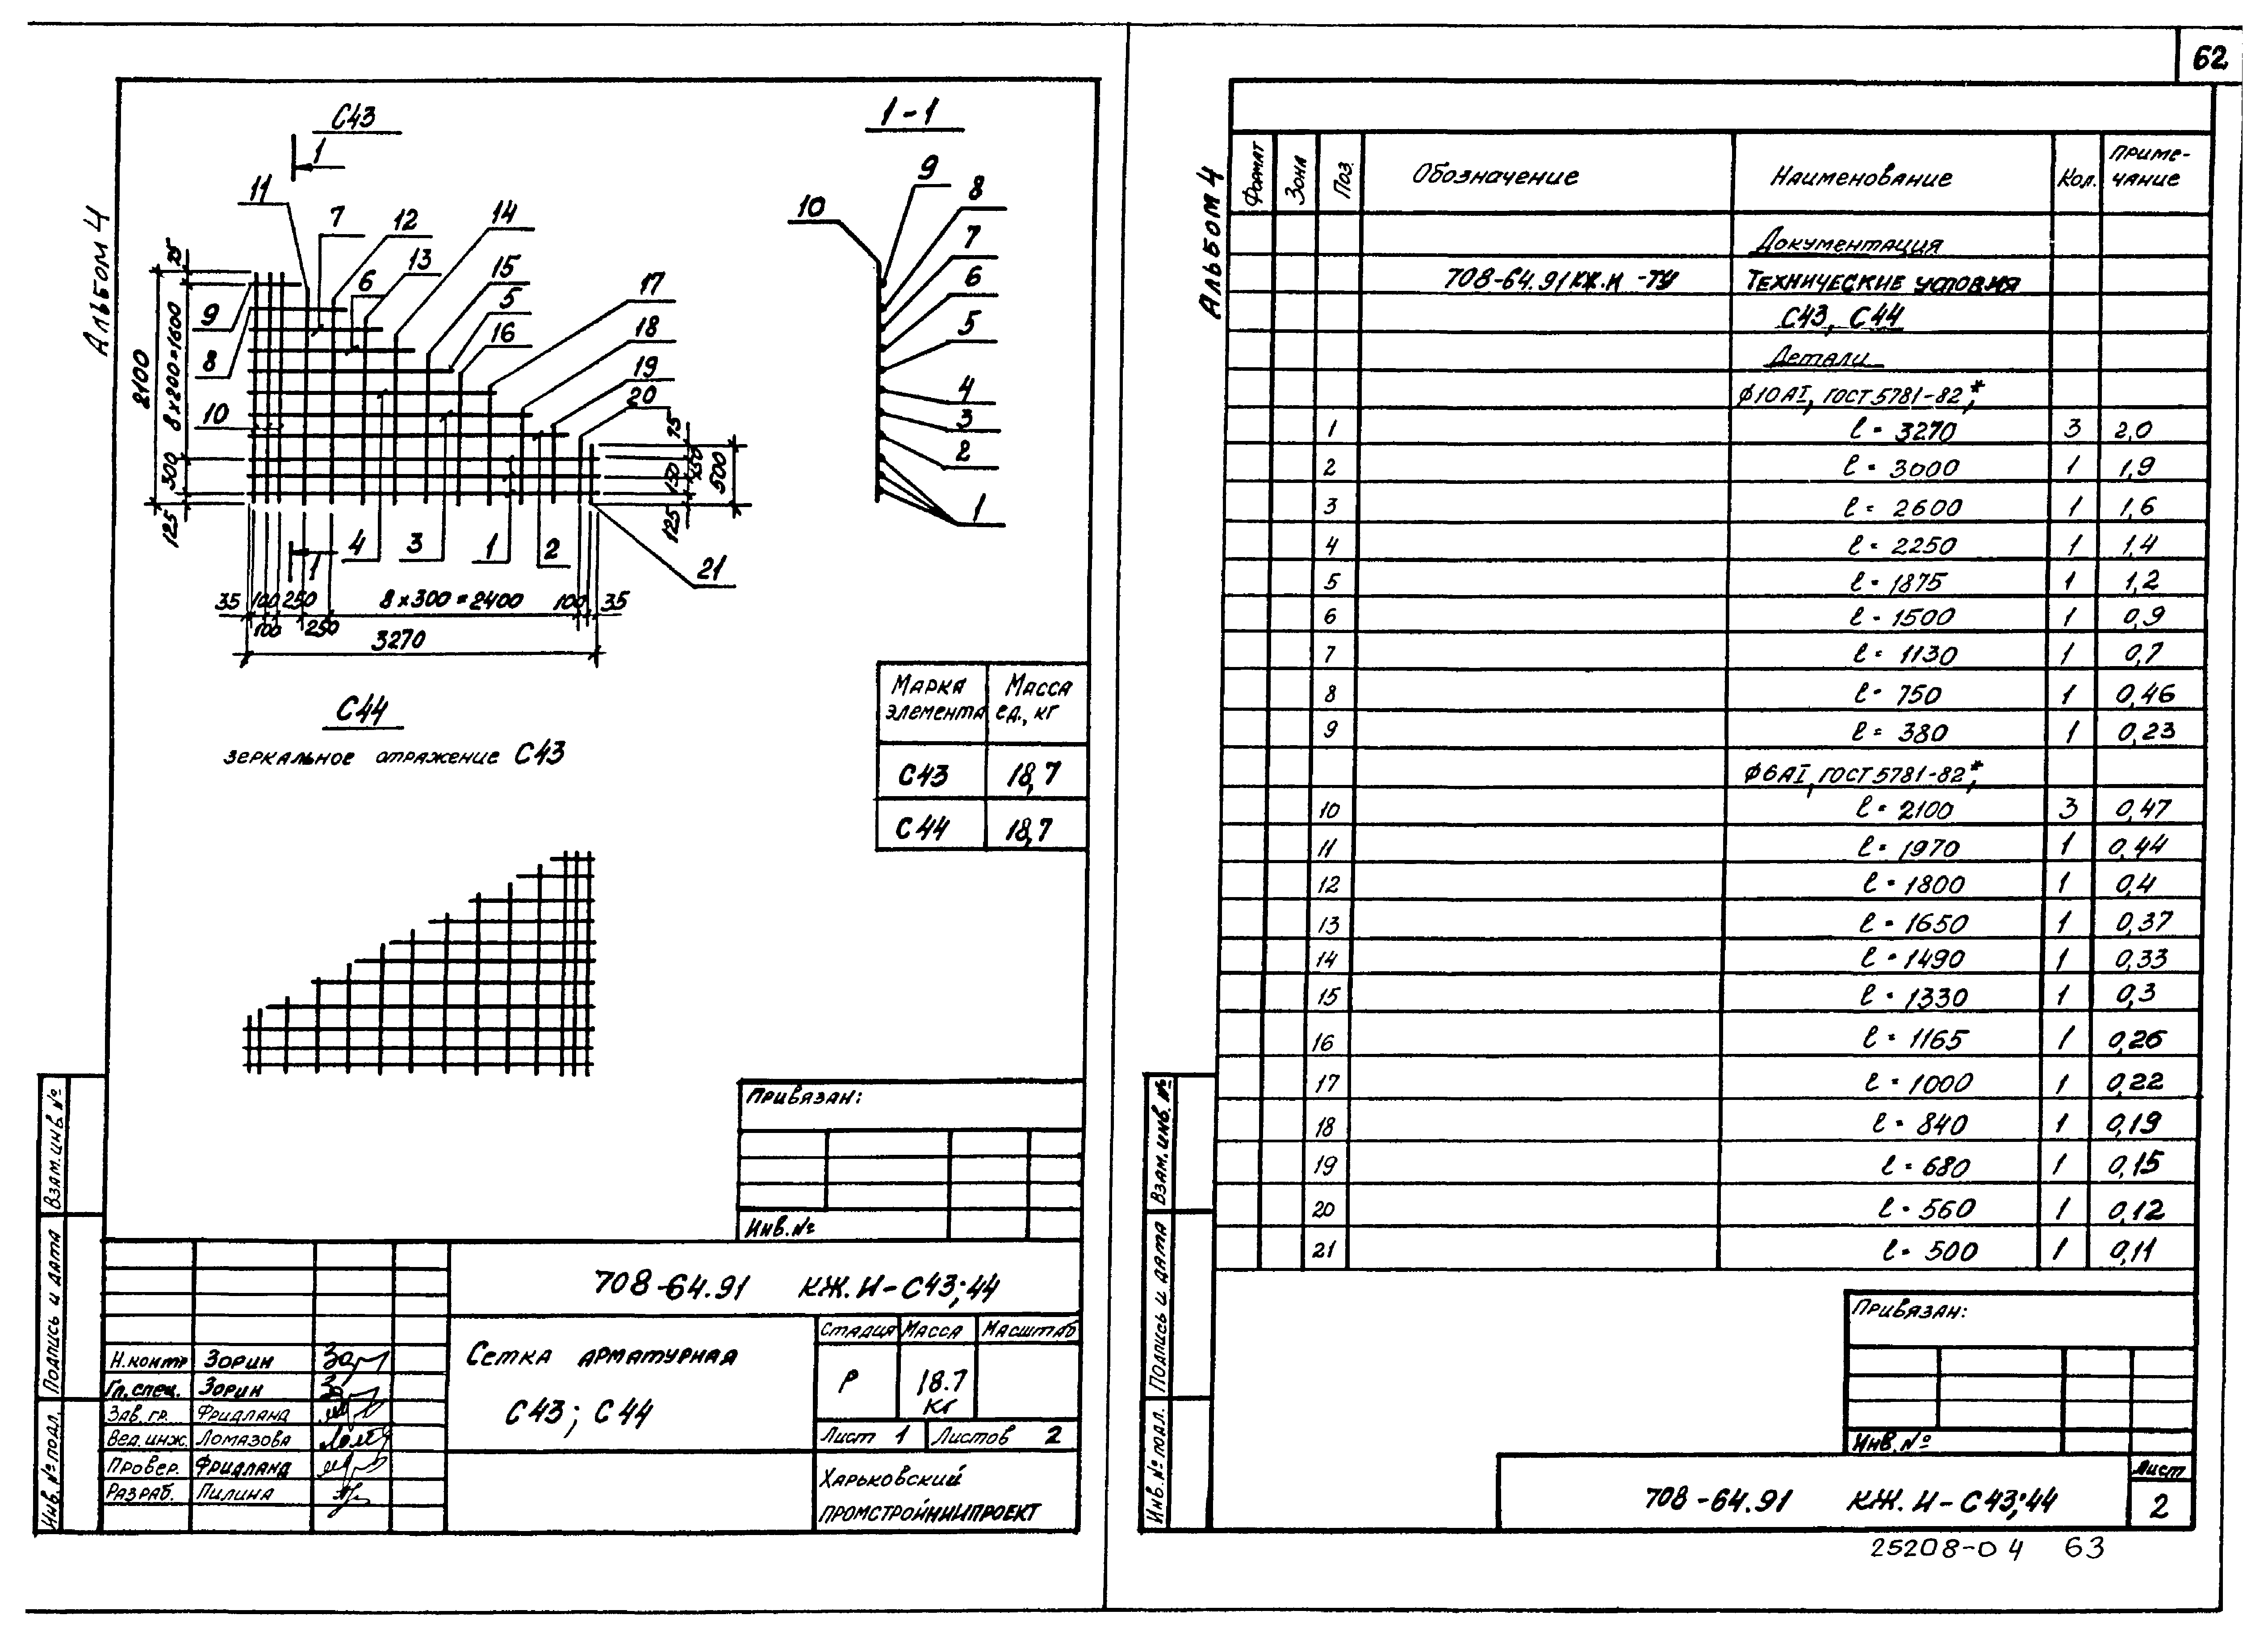 62
Альбом 4
С43
1
11
7
12
14
6
13
15
5
16
17
18
19
20
9
8
10
4
3
1
2
21
1
75
8×200=1600
2100
300
125
75
150
150
125
500
35
100
100
250
250
8×300=2400
100
35
3270
1-1
10
9
8
7
6
5
4
3
2
1
С44
зеркальное отражение С43
Марка элемента Масса ед., кг
С43 18,7
С44 18,7
Привязан:
Инв. №
708-64.91 КЖ.И-С43;44
Сетка арматурная
С43; С44
Стадия Масса Масштаб
Р 18.7 кг
Лист 1 Листов 2
Харьковский
ПРОМСТРОЙНИИПРОЕКТ
Н.контр Зорин
Гл.спец. Зорин
Зав. гр. Фридланд
Вед. инж. Ломазова
Провер. Фридланд
Разраб. Пилина
Взам. инв. №
Подпись и дата
Инв. № подл.
Альбом 4
Формат Зона Поз. Обозначение Наименование Кол. Примечание
Документация
708-64.91 КЖ.И -ТУ Технические условия
С43, С44
Детали
ф10АI, ГОСТ 5781-82*,
1 ℓ = 3270 3 2,0
2 ℓ = 3000 1 1,9
3 ℓ = 2600 1 1,6
4 ℓ = 2250 1 1,4
5 ℓ = 1875 1 1,2
6 ℓ = 1500 1 0,9
7 ℓ = 1130 1 0,7
8 ℓ = 750 1 0,46
9 ℓ = 380 1 0,23
ф6АI, ГОСТ 5781-82*,
10 ℓ = 2100 3 0,47
11 ℓ = 1970 1 0,44
12 ℓ = 1800 1 0,4
13 ℓ = 1650 1 0,37
14 ℓ = 1490 1 0,33
15 ℓ = 1330 1 0,3
16 ℓ = 1165 1 0,26
17 ℓ = 1000 1 0,22
18 ℓ = 840 1 0,19
19 ℓ = 680 1 0,15
20 ℓ = 560 1 0,12
21 ℓ = 500 1 0,11
Привязан:
Инв. №
708-64.91 КЖ.И-С43;44
Лист
2
Взам. инв. №
Подпись и дата
Инв. № подл.
25208-04 63